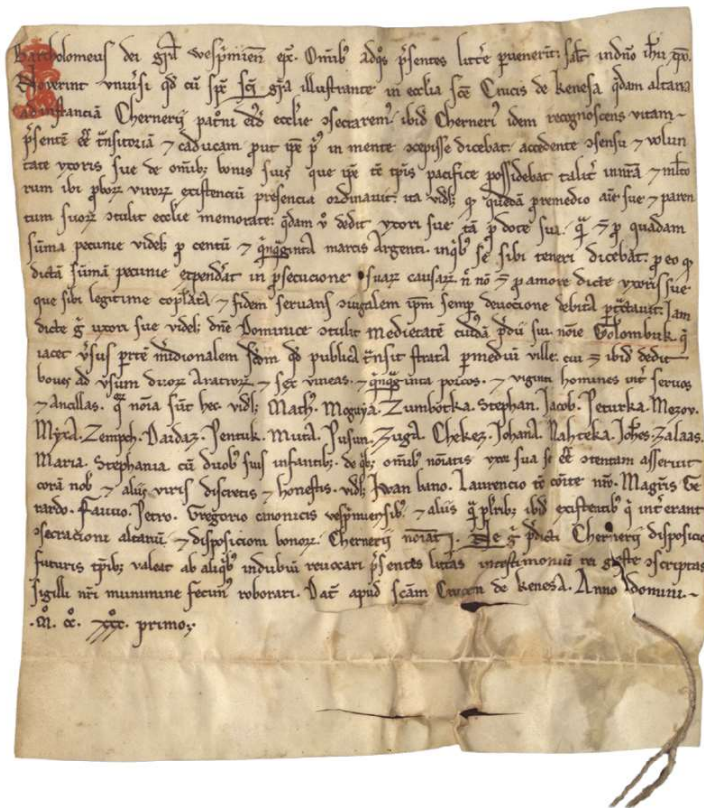 Bartholomeus dei gr̄a wesp̄miēn ep̄c. Om̄ib; ad q̄s p̄sentes litt̄e p̄uenerīt; sal̄t in dn̄o ih̄u xp̄o.
Nouerint vniu̾si qd̄ cū sp̄c sc̄i gr̄a illustrante in eccl̄ia sc̄e Crucis de kenesa q̄dam altaria
ad instanciā Chernerij pat̄ni eid̄ eccl̄ie ↄsecrarem; ibid Cherneri; idem recognoscens vitam
p̄sentē e̅e̅ t̄nsitoriā ⁊ caducam, put ip̄e p̾; in mente ↄcepisse dicebat; accedente ↄsensu ⁊ volun
tate vxoris sue de om̄ib; bonis suis, que ip̄e tē tp̄is pacifice possidebat talit̾ int̾ nrā ⁊ m̄lto
rum ibi p̾boꝝ viroꝝ existenciū presencia ordinauit; ita videl; qd̄ quedā p̾ remedio aīe sue ⁊ paren
tum suoꝝ ↄtulit eccl̄ie memorate; q̄dam v̾ dedit vxori sue tā p̾ dote sua, q̄ ⁊ p̾ quadam
sūma pecunie videl; p̾ centū ⁊ q̄nq̄ginta marcis Argenti. in q̄b; se sibi teneri dicebat; p̾ eo qd̄
dictā sūmā pecunie expend̾at in p̾secucione suaꝝ causaꝝ n̄ nō ⁊ p̾ amore dicte vxoris sue
que sibi legitime cop̄lata ⁊ fidem seruans ↄiugalem ip̄m semp̄ deuocione debita p̾tractauit; Iam
dicte g̾ vxori sue videl; dn̄e Dominice ↄtulit medietatē cui̾dā p̾dij sui nōie Golombuk q̄
iacet v̾sus p̾tē m̾idionalem sc̄dm qd̄ publica t̄nsit strata p̾ mediū ville; cui ⁊ ibid̄ dedit
boues ad vsum duoꝝ Aratroꝝ ⁊ sex vineas. ⁊ q̄nq̄ginta porcos. ⁊ viginti homines int̾ seruos
⁊ ancillas. q̄ꝝ nōia sūt hec. videl; Math̾. Moguya. Zumbotka. Stephan̾. Jacob. Peturka. Mozov.
Myxa. Zempeh. Dardaz. Pentuk. Muta. Pusun. Zuga. Chekez. Johana. Rahteka. Joh̄es. Zalaas.
Maria. Stephania cū duob; suis infantib;. de q̄b; om̄ib; nōiatis vxor sua se e̅e̅ ↄtentam asseruit
corā nob̾ ⁊ alijs viris discretis ⁊ honestis. videl; Iwan bano. Laurencio tē cōite nr̄o. Magr̄is Ge
rardo. Fauuo. Petro. Gregorio canonicis vesp̄miensib;. ⁊ alijs q̄ p̾lrib; ibid̄ existentib; q̄ int̾erant
ↄsecracioni altariū ⁊ disposicioni bonoꝝ Chernerij nōiati. Ne g̾ p̾dicti Chernerij disposicio
futuris tp̄ib; valeat ab aliq̄b; in dubiū reuocari p̾sentes litt̾as in testimoniū rei geste ↄscriptas
sigilli nr̄i munimine fecim̾ roborari. Dat̾ apud sc̄am Crucem de kenesa. Anno domini
.M̊. CC̊. XXX̊. primo.